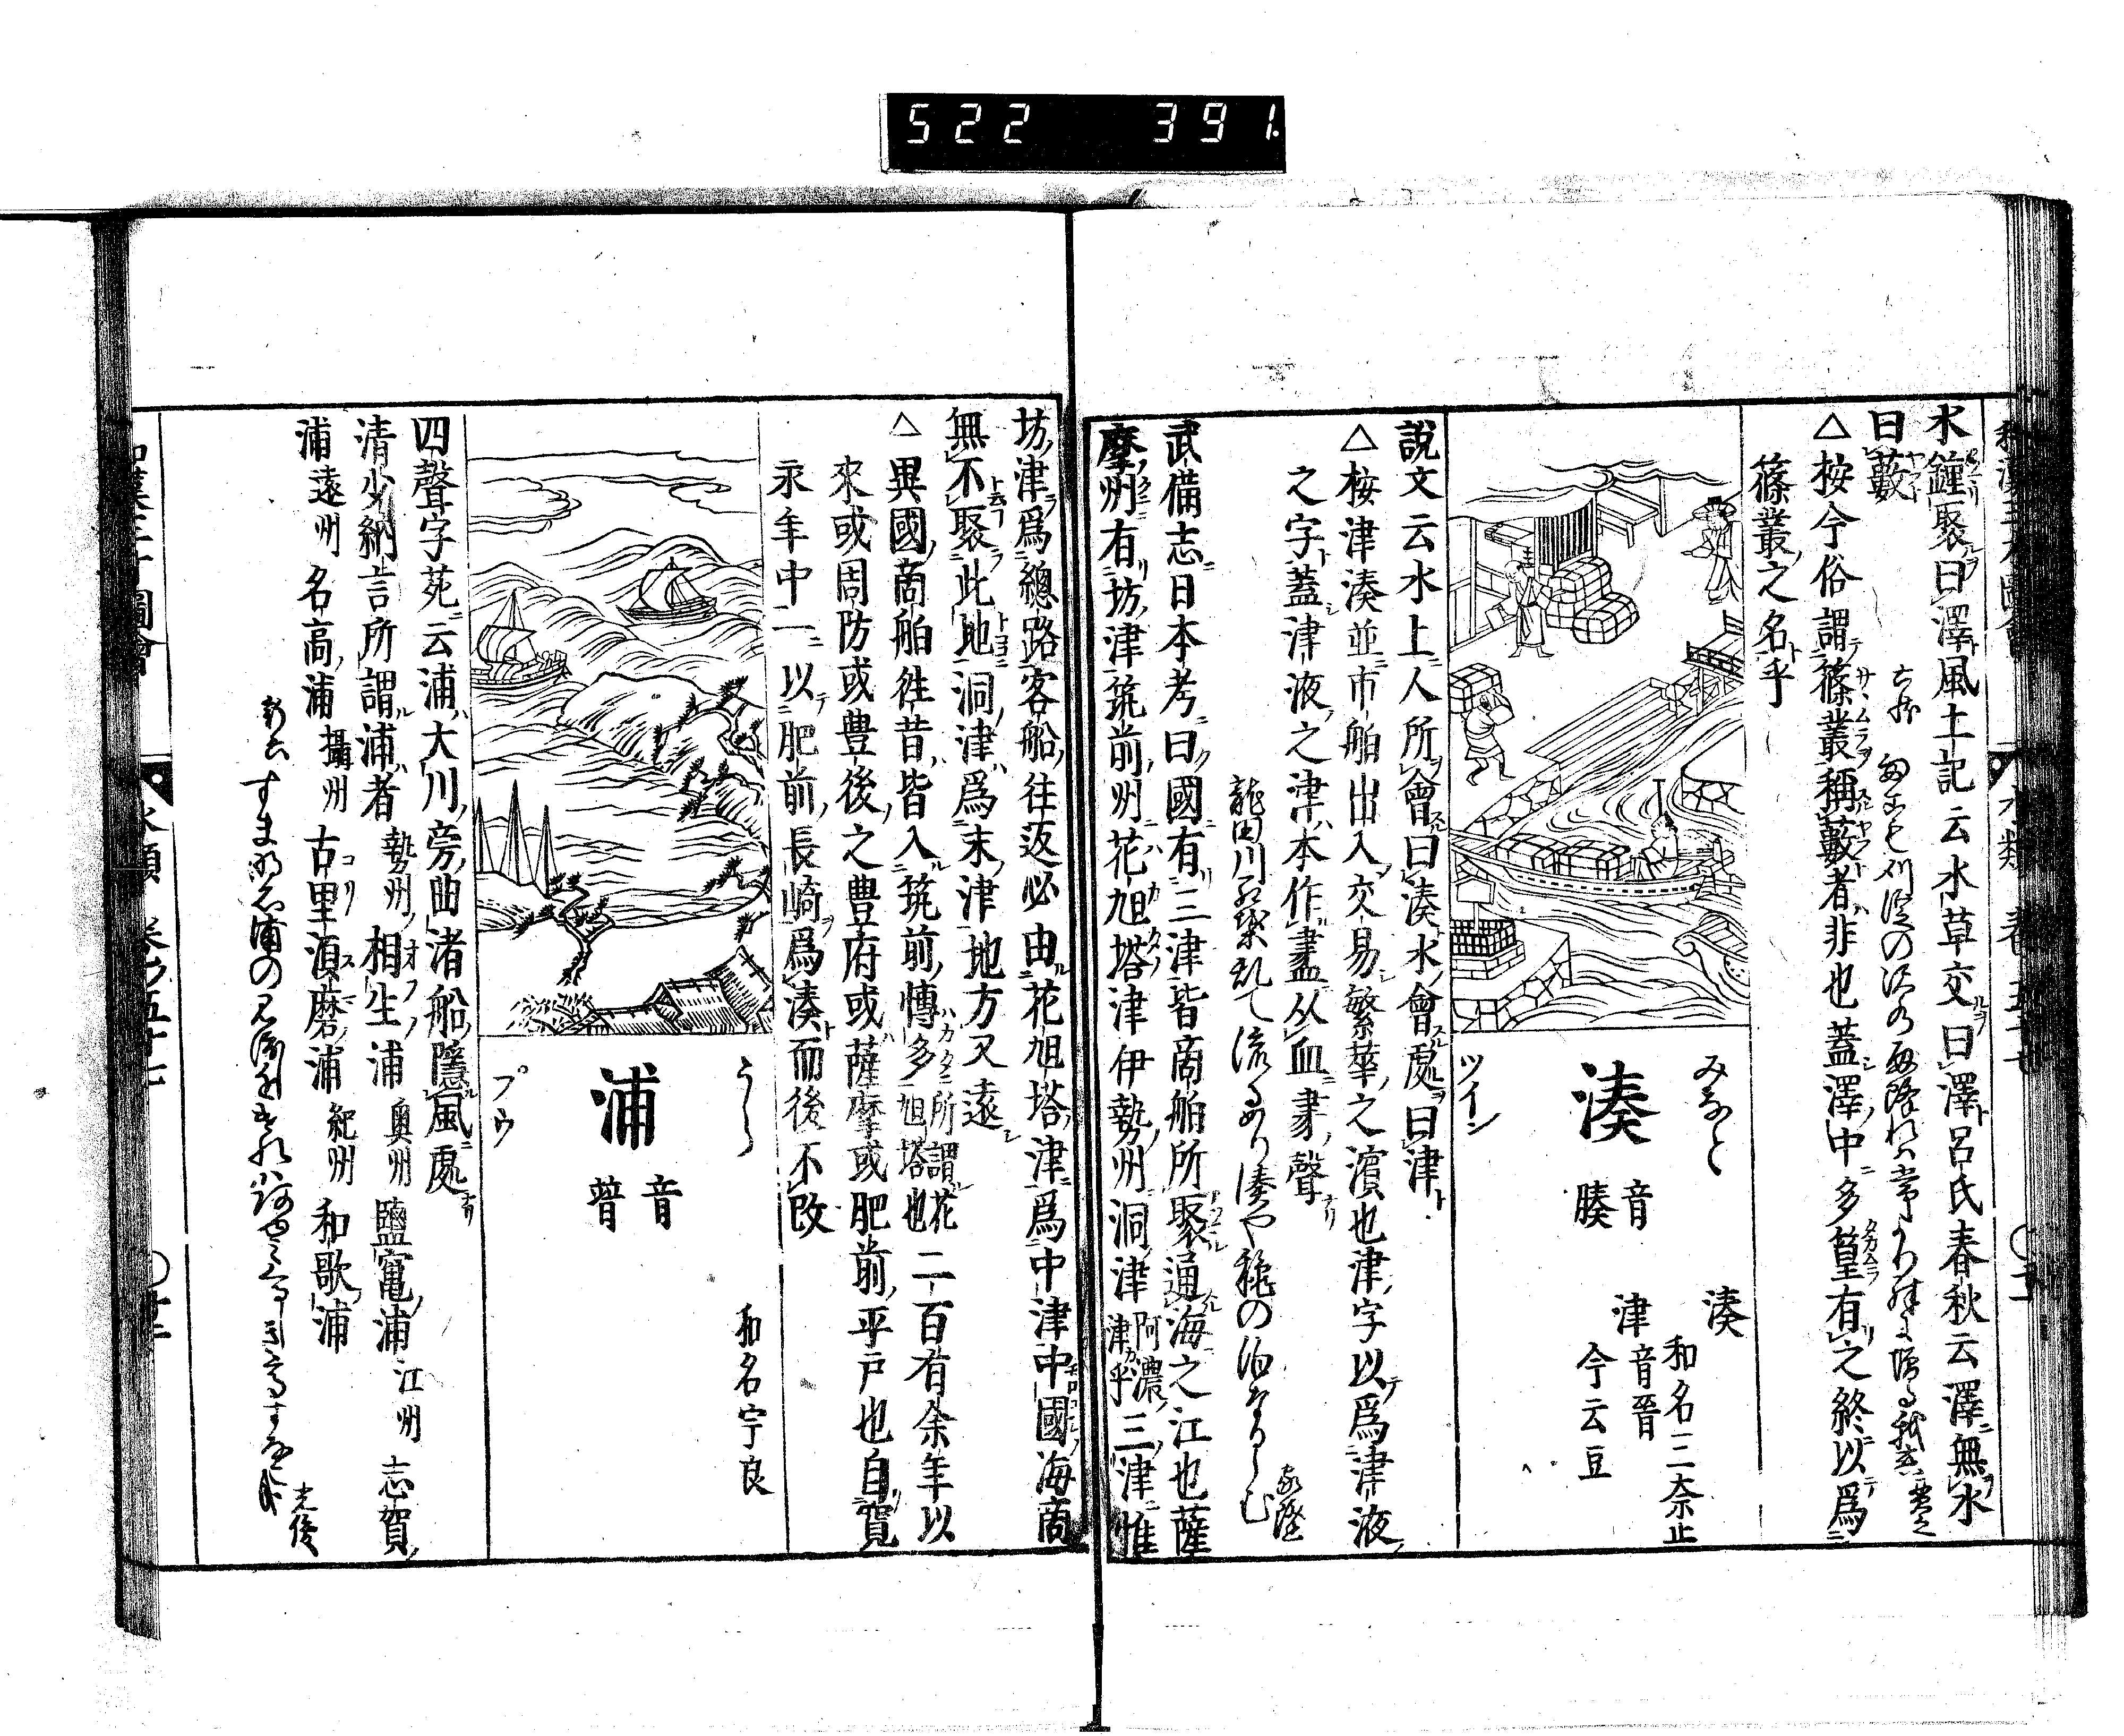 522 391
水鐘聚曰澤風土記云水草交曰澤呂氏春秋云澤無水
曰藪
△桉今俗謂篠叢稱藪者非也蓋澤中多篁有之終以爲
篠叢之名乎
みなと
湊
音
腠
湊
和名三奈止
津
音晉
今云豆
ツイン
說文云水上人所會曰湊水會處曰津
△桉津湊並市舶出入交易繁華之濵也津字以爲津液
之字蓋津液之津本作衋从血聿聲
龍田川紅葉乱て流るめり湊や龝の泊なるらむ
武備志日本考曰國有三津皆商舶所聚通海之江也薩
摩州有坊津筑前州花旭塔津伊勢州洞津阿濃津乎三津惟
坊津爲總路客船往返必由花旭塔津爲中津中國海商
無不聚此地洞津爲末津地方又遠
△異國商舶徃昔皆入筑前博多所謂花旭塔也二百有余年以
來或周防或豊後之豊府或薩摩或肥前平戸也自寬
永年中一以肥前長崎爲湊而後不改
うら
浦
音
普
和名宇良
プウ
四聲字苑云浦大川旁曲渚船隱風處
清少納言所謂浦者勢州相生浦奥州鹽竃浦江州志賀
浦遠州名高浦攝州古里須磨浦紀州和歌浦
光俊
水類